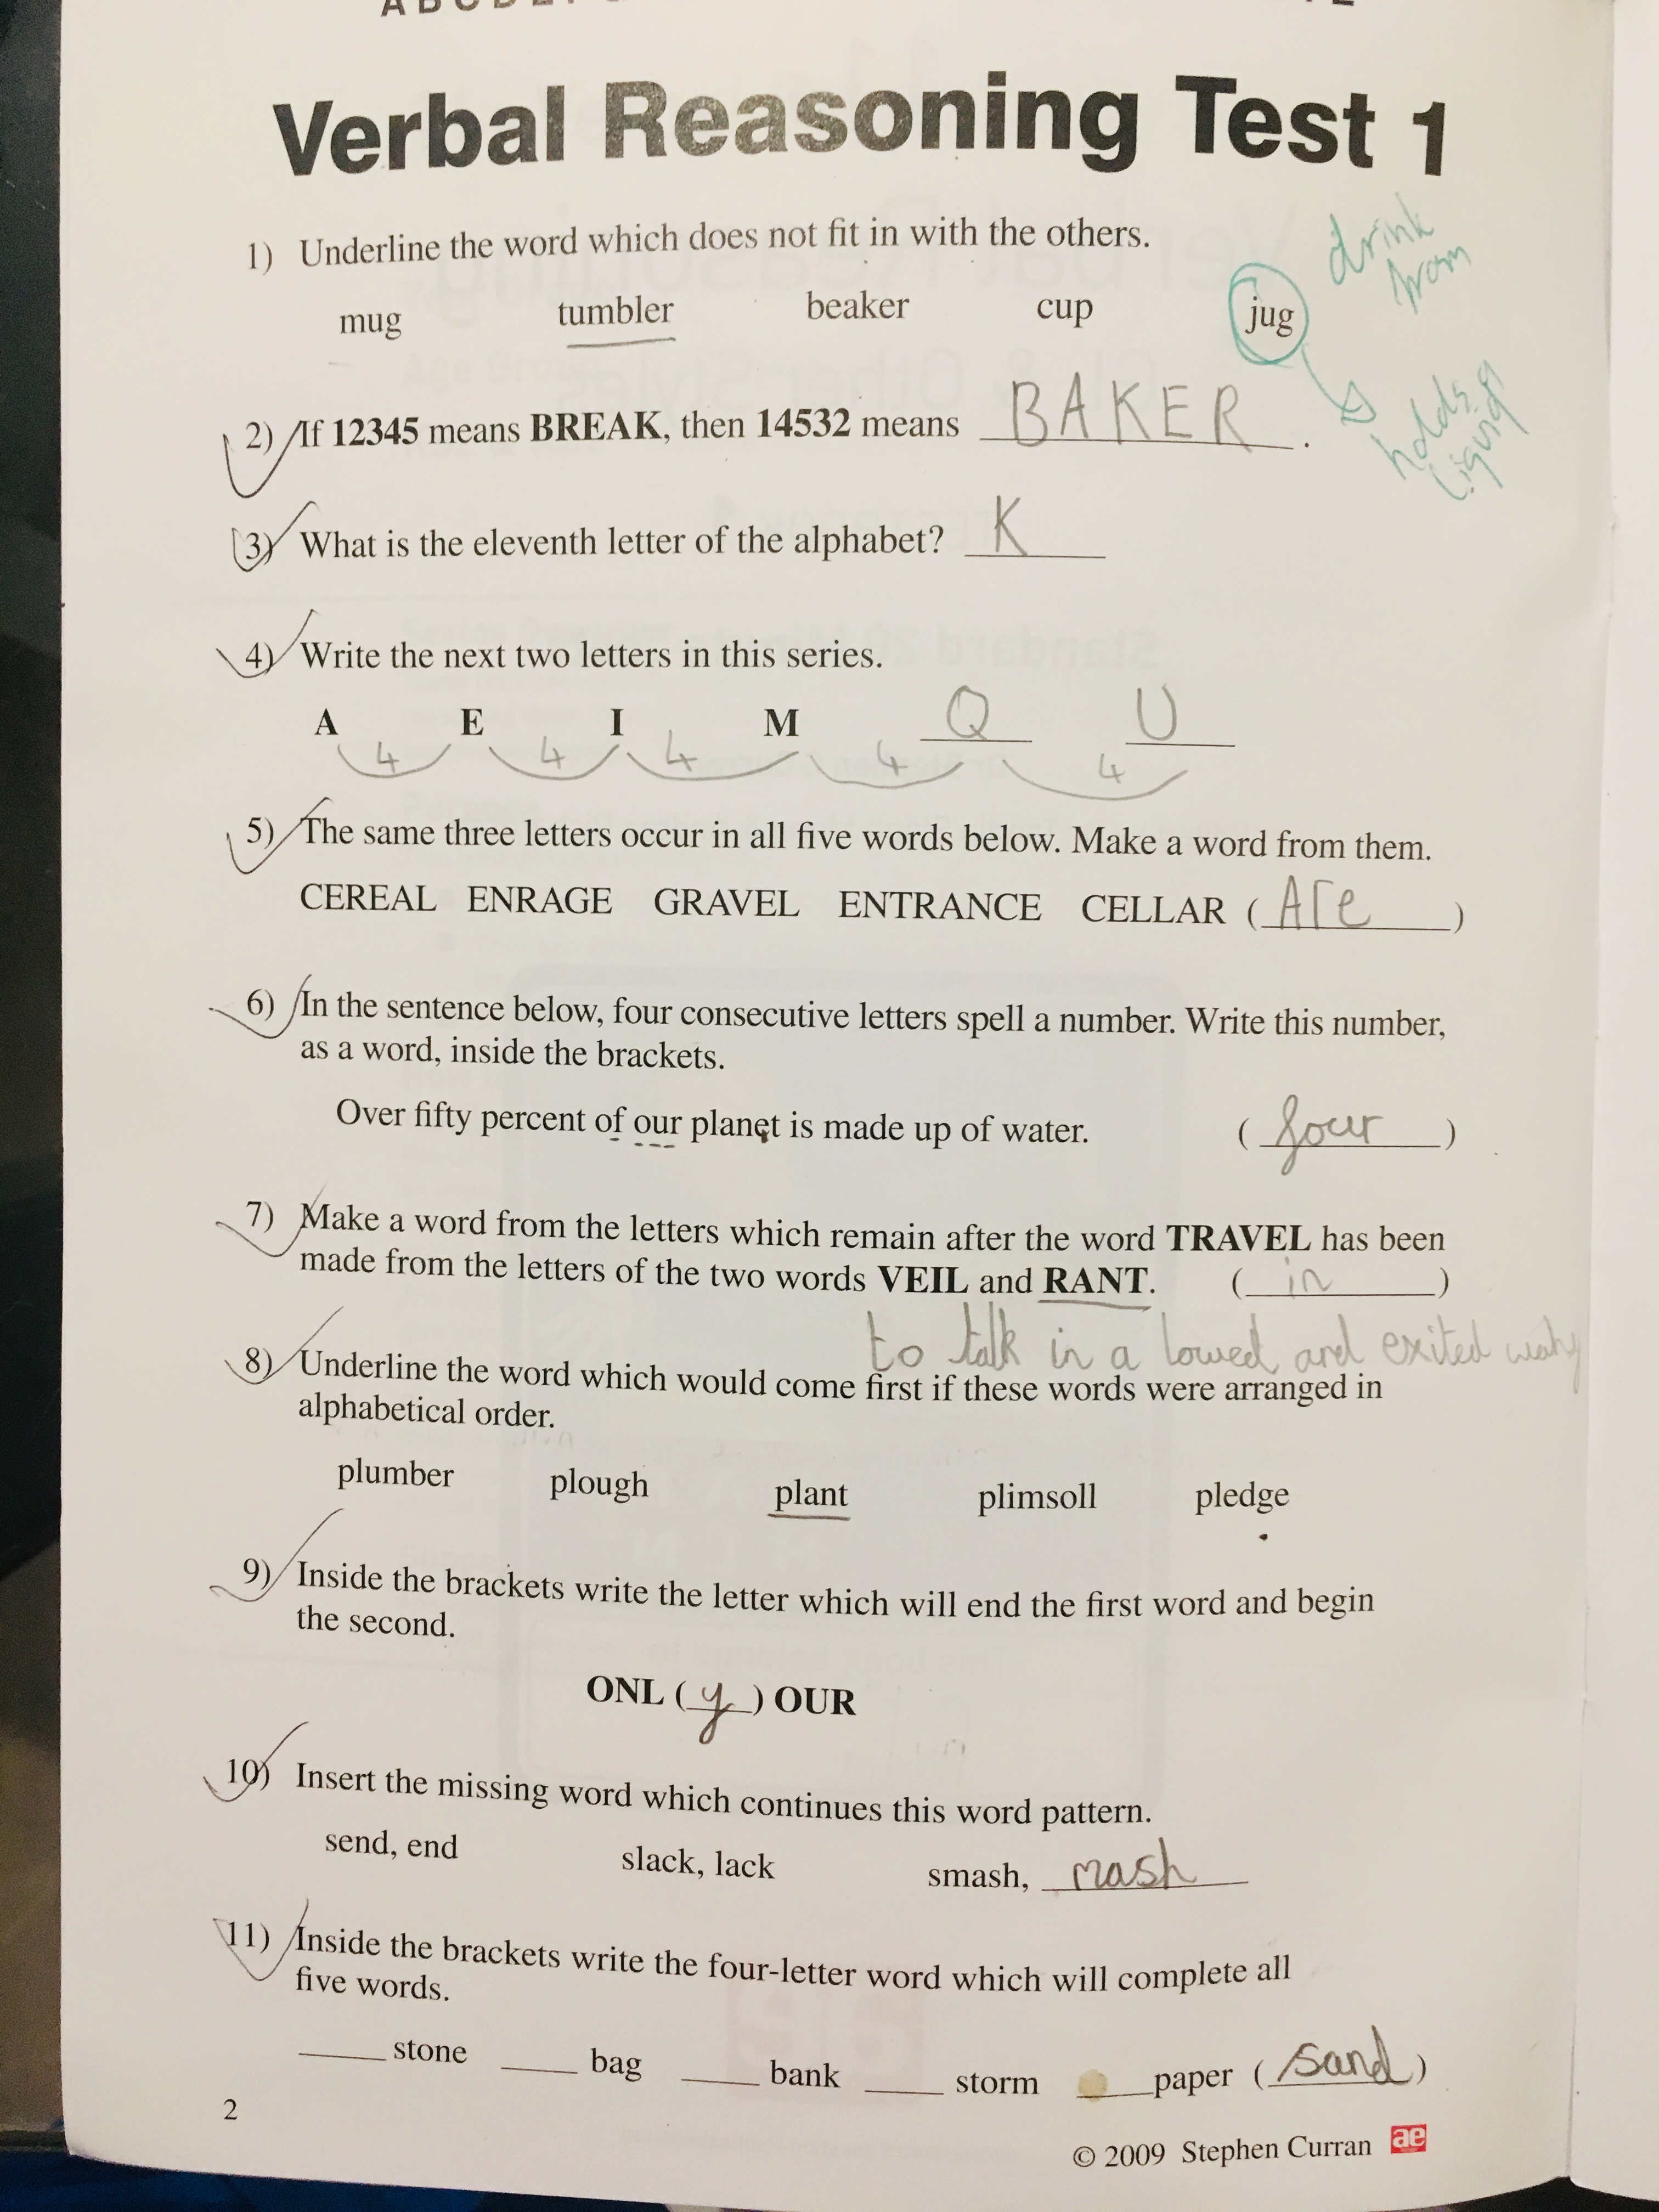 Verbal Reasoning Test 1
1) Underline the word which does not fit in with the others.
drink from
mug tumbler beaker cup jug
holds liquid
2) If 12345 means BREAK, then 14532 means BAKER .
3) What is the eleventh letter of the alphabet? K
4) Write the next two letters in this series.
A E I M Q U
4 4 4 4 4
5) The same three letters occur in all five words below. Make a word from them.
CEREAL ENRAGE GRAVEL ENTRANCE CELLAR ( Are )
6) In the sentence below, four consecutive letters spell a number. Write this number,
as a word, inside the brackets.
Over fifty percent of our planet is made up of water. ( four )
7) Make a word from the letters which remain after the word TRAVEL has been
made from the letters of the two words VEIL and RANT. ( in )
to talk in a lowed and exited
8) Underline the word which would come first if these words were arranged in
alphabetical order.
plumber plough plant plimsoll pledge
9) Inside the brackets write the letter which will end the first word and begin
the second.
ONL ( y ) OUR
10) Insert the missing word which continues this word pattern.
send, end slack, lack smash, mash
11) Inside the brackets write the four-letter word which will complete all
five words.
____ stone ____ bag ____ bank ____ storm ____ paper ( sand )
2
© 2009 Stephen Curran ae